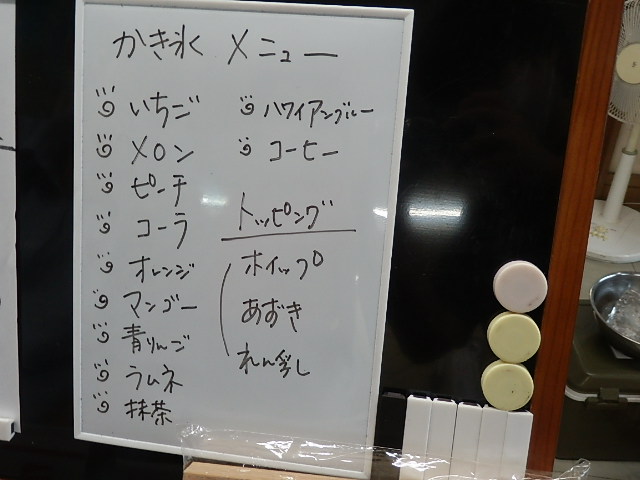 かき氷 メニュー
いちご
メロン
ピーチ
コーラ
オレンジ
マンゴー
青りんご
ラムネ
抹茶
ハワイアンブルー
コーヒー
トッピング
ホイップ
あずき
れん乳